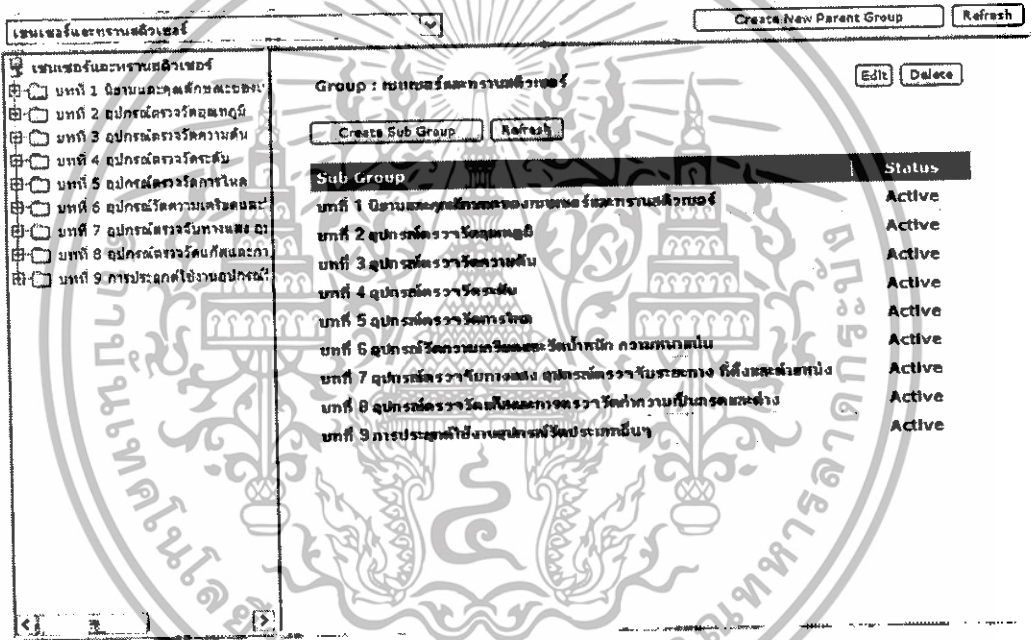 เซนเซอร์และทรานสดิวเซอร์
Create New Parent Group
Refresh
เซนเซอร์และทรานสดิวเซอร์
บทที่ 1 นิยามและคุณลักษณะของเ
บทที่ 2 อุปกรณ์ตรวจวัดอุณหภูมิ
บทที่ 3 อุปกรณ์ตรวจวัดความดัน
บทที่ 4 อุปกรณ์ตรวจวัดระดับ
บทที่ 5 อุปกรณ์ตรวจวัดการไหล
บทที่ 6 อุปกรณ์วัดความเครียดและ
บทที่ 7 อุปกรณ์ตรวจจับทางแสง อุ
บทที่ 8 อุปกรณ์ตรวจวัดแก๊สและกา
บทที่ 9 การประยุกต์ใช้งานอุปกรณ์
Group : เซนเซอร์และทรานสดิวเซอร์
Edit
Delete
Create Sub Group
Refresh
Sub Group
Status
บทที่ 1 นิยามและคุณลักษณะของเซนเซอร์และทรานสดิวเซอร์
Active
บทที่ 2 อุปกรณ์ตรวจวัดอุณหภูมิ
Active
บทที่ 3 อุปกรณ์ตรวจวัดความดัน
Active
บทที่ 4 อุปกรณ์ตรวจวัดระดับ
Active
บทที่ 5 อุปกรณ์ตรวจวัดการไหล
Active
บทที่ 6 อุปกรณ์วัดความเครียดและวัดน้ำหนัก ความหนาแน่น
Active
บทที่ 7 อุปกรณ์ตรวจจับทางแสง อุปกรณ์ตรวจจับระยะทาง ที่ตั้งและตำแหน่ง
Active
บทที่ 8 อุปกรณ์ตรวจวัดแก๊สและการตรวจวัดค่าความเป็นกรดและด่าง
Active
บทที่ 9 การประยุกต์ใช้งานอุปกรณ์วัดประเภทอื่นๆ
Active